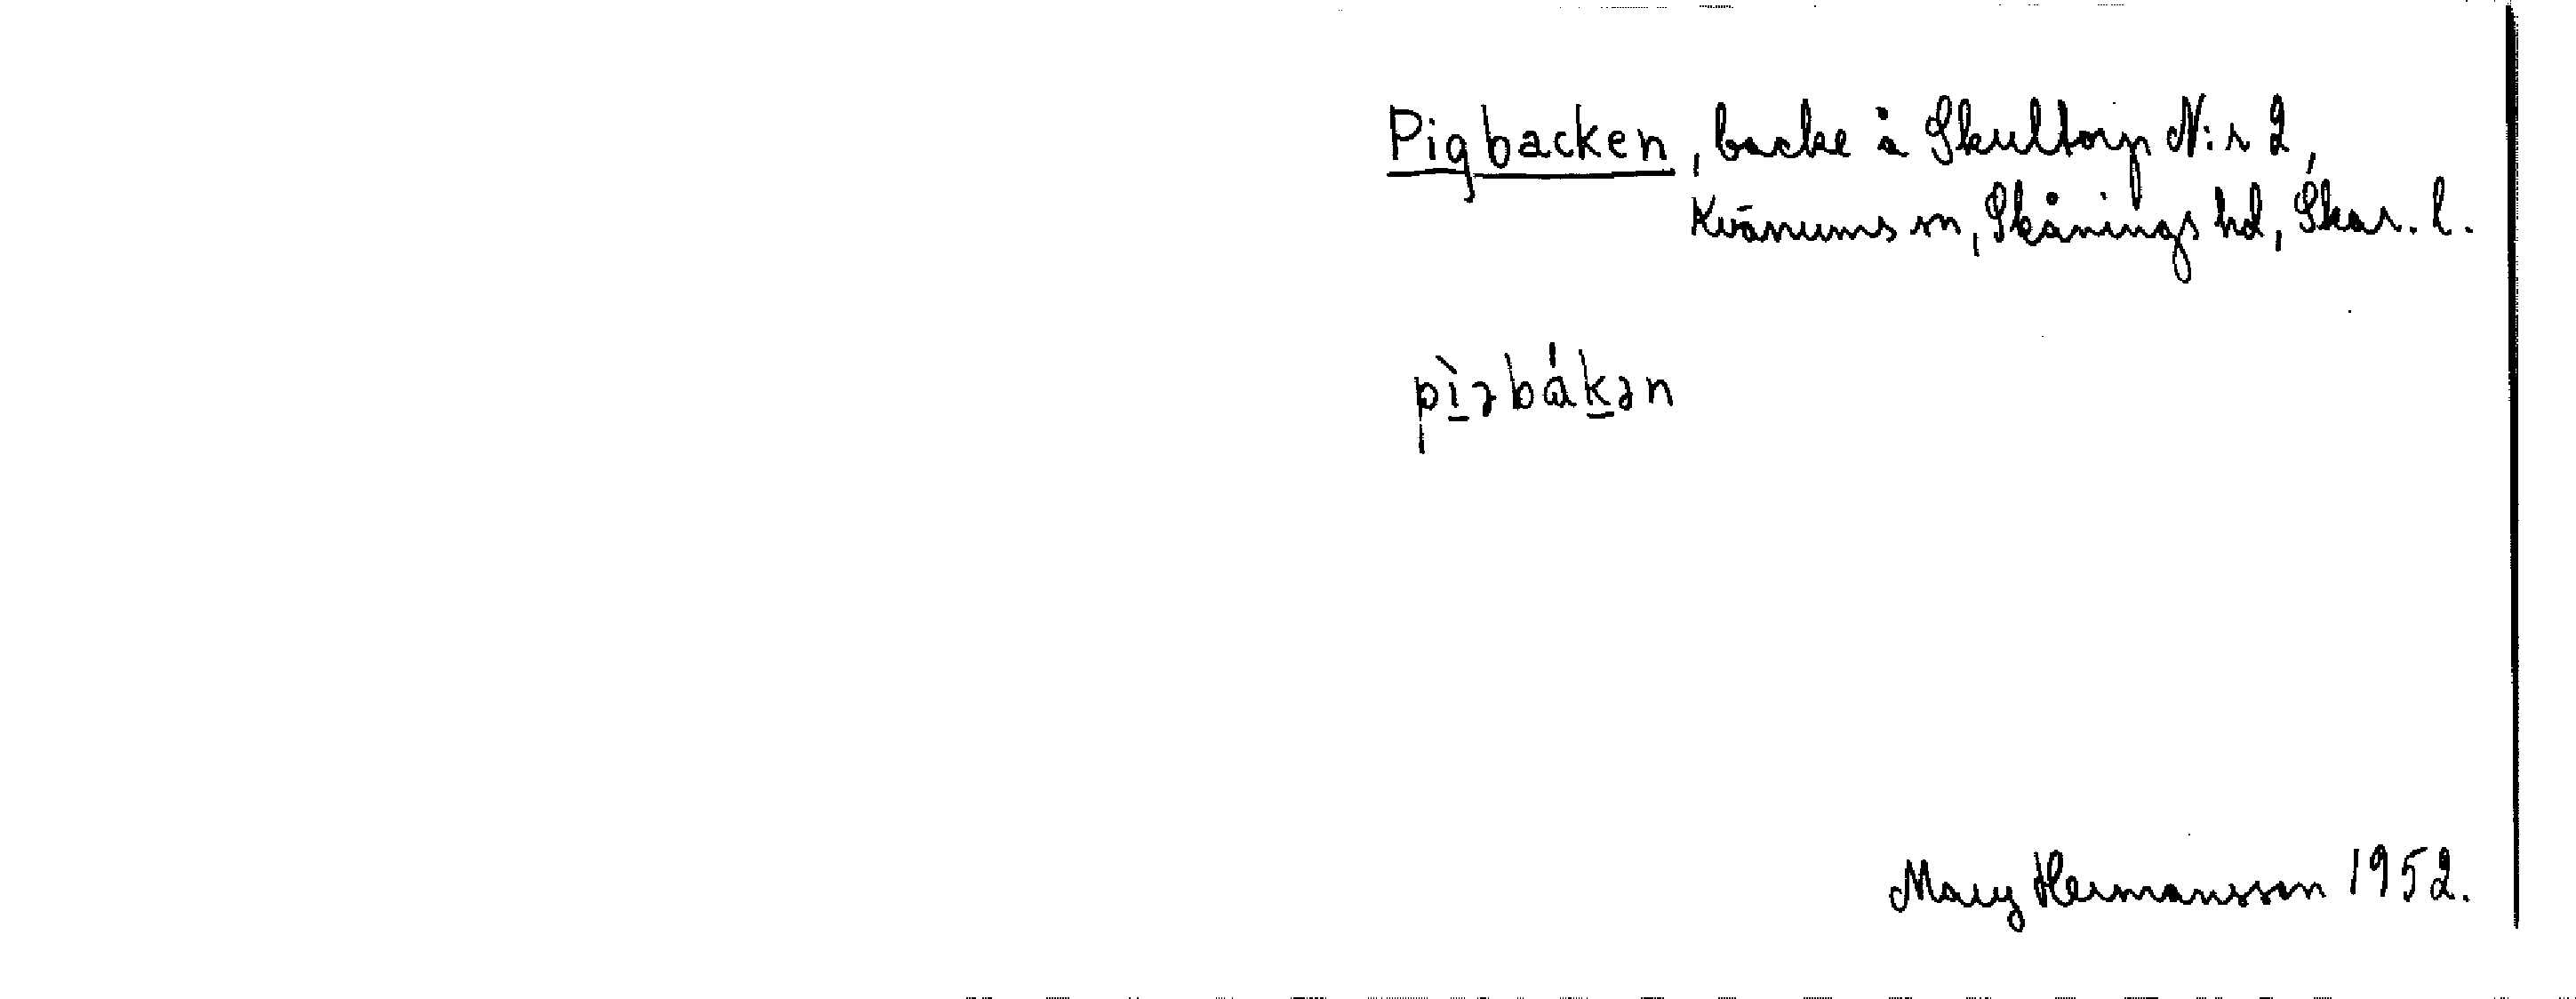 Pigbacken, backe å Skultorp N:r 2,
Kvänums sn, Skånings hd, Skar. l.
pìəbákən
Mary Hermansson 1952.